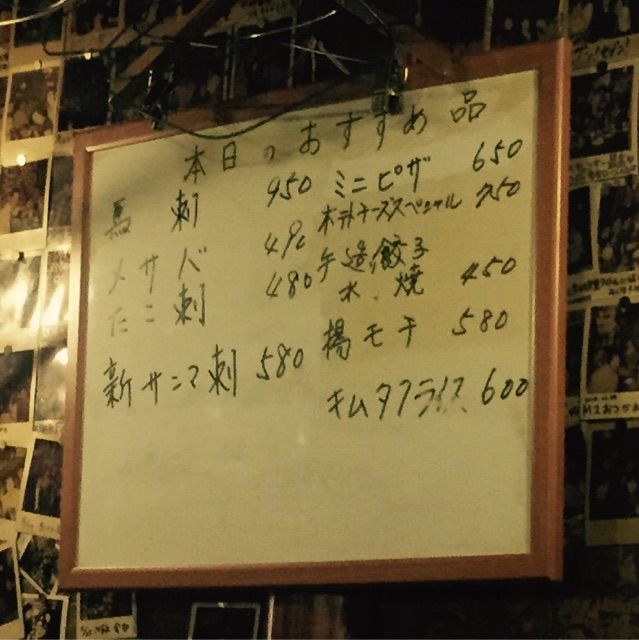 本日のおすすめ品
馬刺 950
〆サバ 490
たこ刺 480
新サンマ刺 580
ミニピザ 650
チーズスペシャル 750
手造餃子
水、焼 450
揚モチ 580
キムタクライス 600